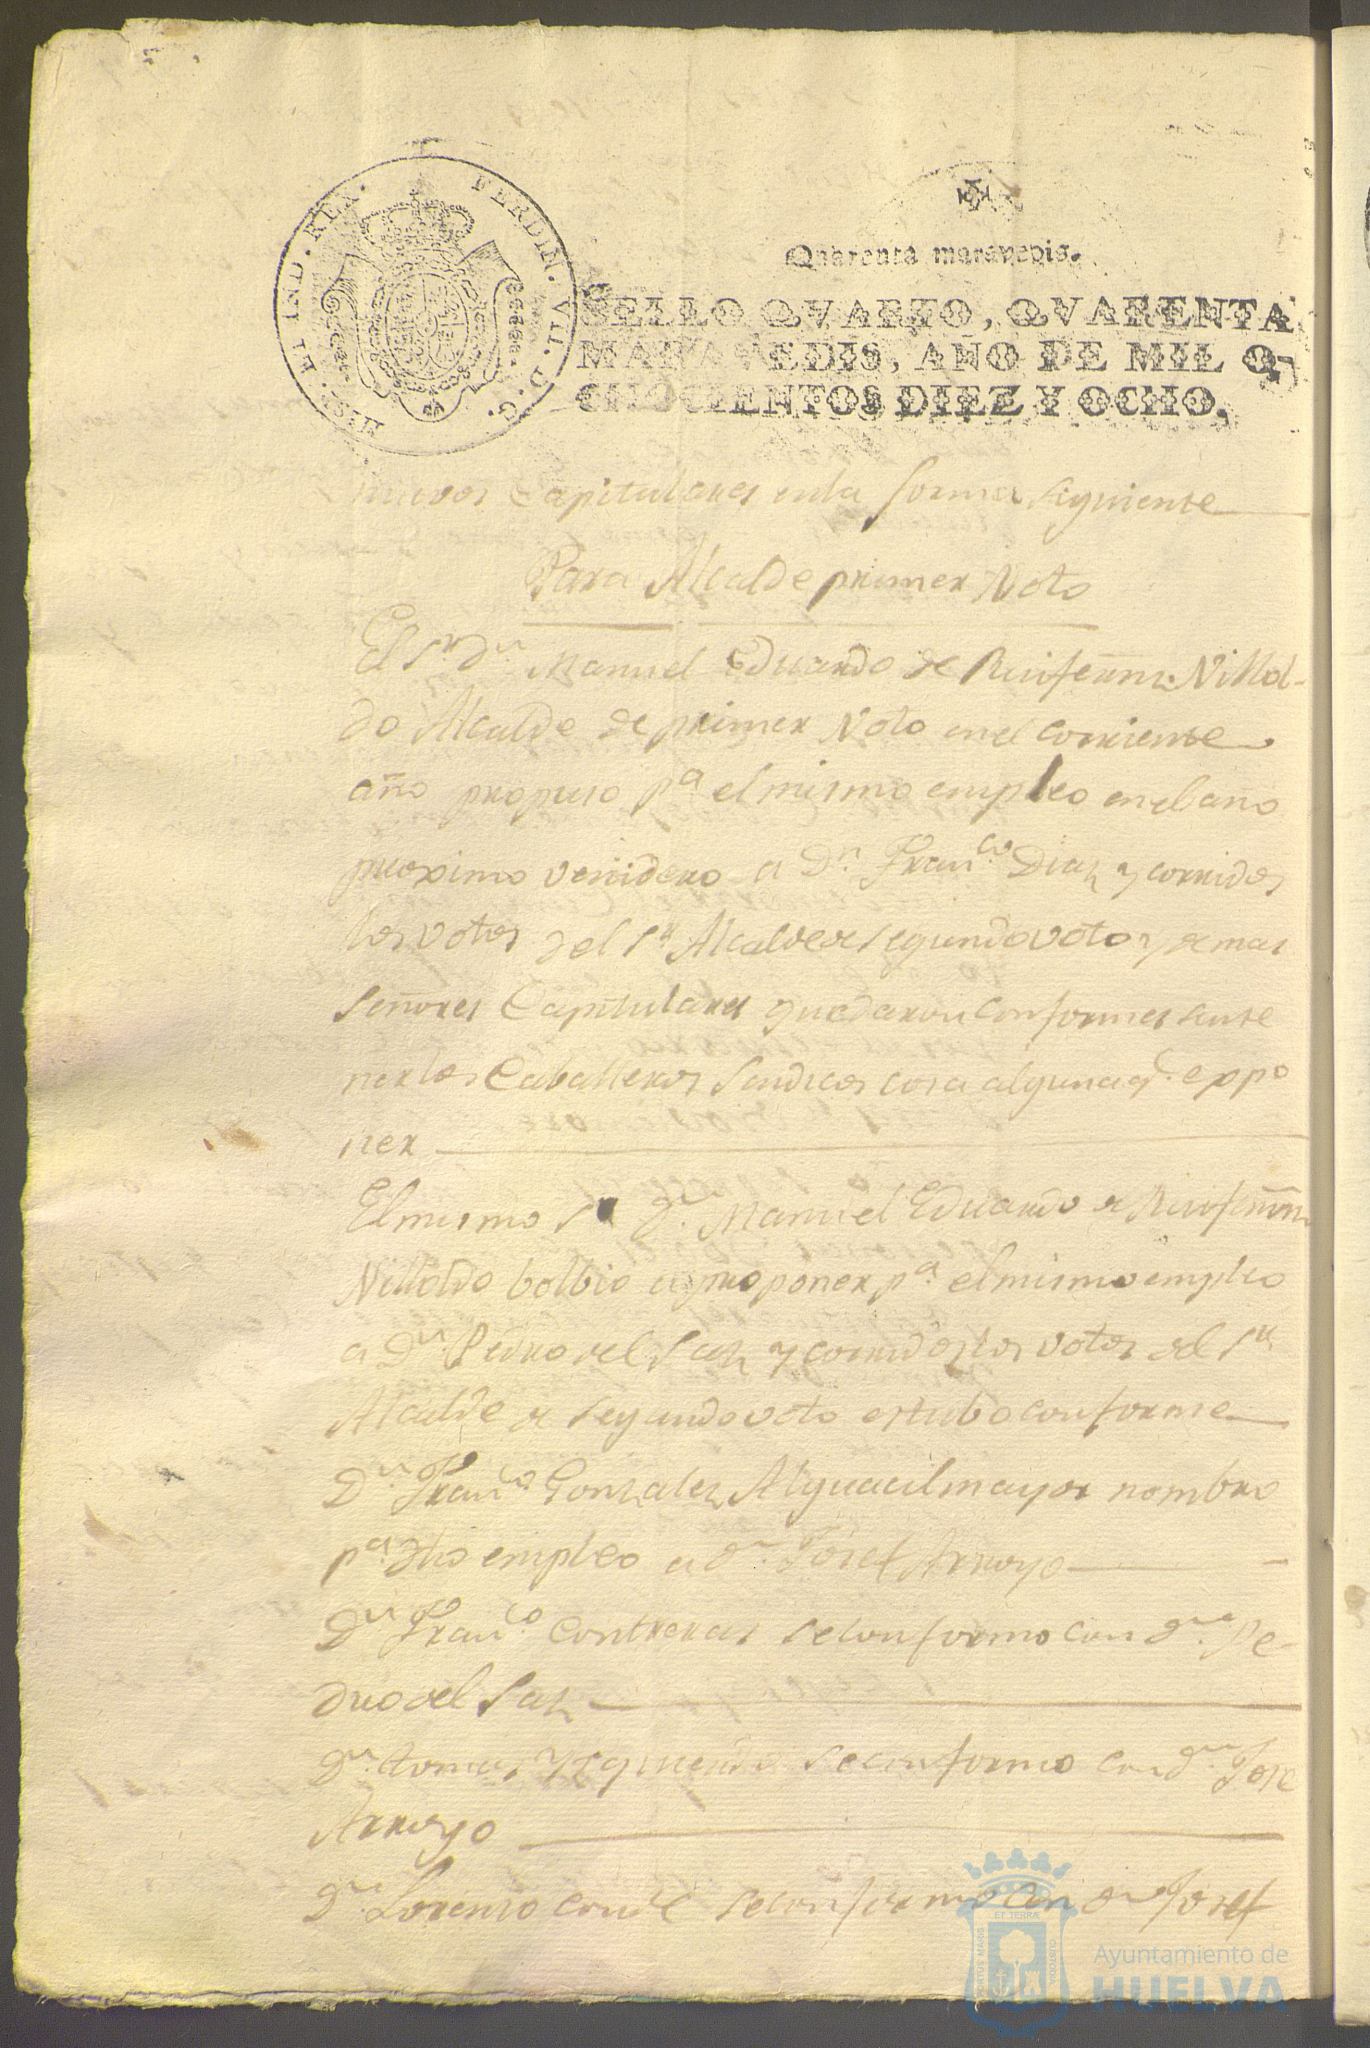 HISP. ET IND. REX. FERDIN. VII. D. G.
Quarenta maravedis.
SELLO QVARTO, QVARENTA
MARAVEDIS, AÑO DE MIL O-
CHOCIENTOS DIEZ Y OCHO.
nuevos Capitulares enla forma siguiente
Para Alcalde primer Voto
El Sr. Dn. Manuel Eduardo de Villol-
do Alcalde de primer Voto en el corriente
año propuso pa. el mismo empleo en el año
proximo venidero a Dn. Franco. Diaz y corridos
los votos del Sr. Alcalde de segundo voto y demas
Señores Capitulares quedaron conformes sinte
ner los Caballeros Sindicos cosa alguna q. expo
ner
El mismo Sr. Dn. Manuel Eduardo de
Villoldo bolbio a proponer pa. el mismo empleo
a Dn. Pedro del Saz y corridos los votos del Sr.
Alcalde de segundo voto estubo conforme
Dn. Franco. Gonzalez Alguacil mayor nombro
pa. dho empleo a Dn. Josef Arroyo
Dn. Franco. Contreras se conformo con Dn. Pe-
dro del Saz
Dn. Tomas Yzquierdo se conformo con Dn. Jose
Arroyo
Dn. Lorenzo Conde se conformo con Dn. Josef
PORTUS MARIS ET TERRAE CUSTODIA
Ayuntamiento de
HUELVA